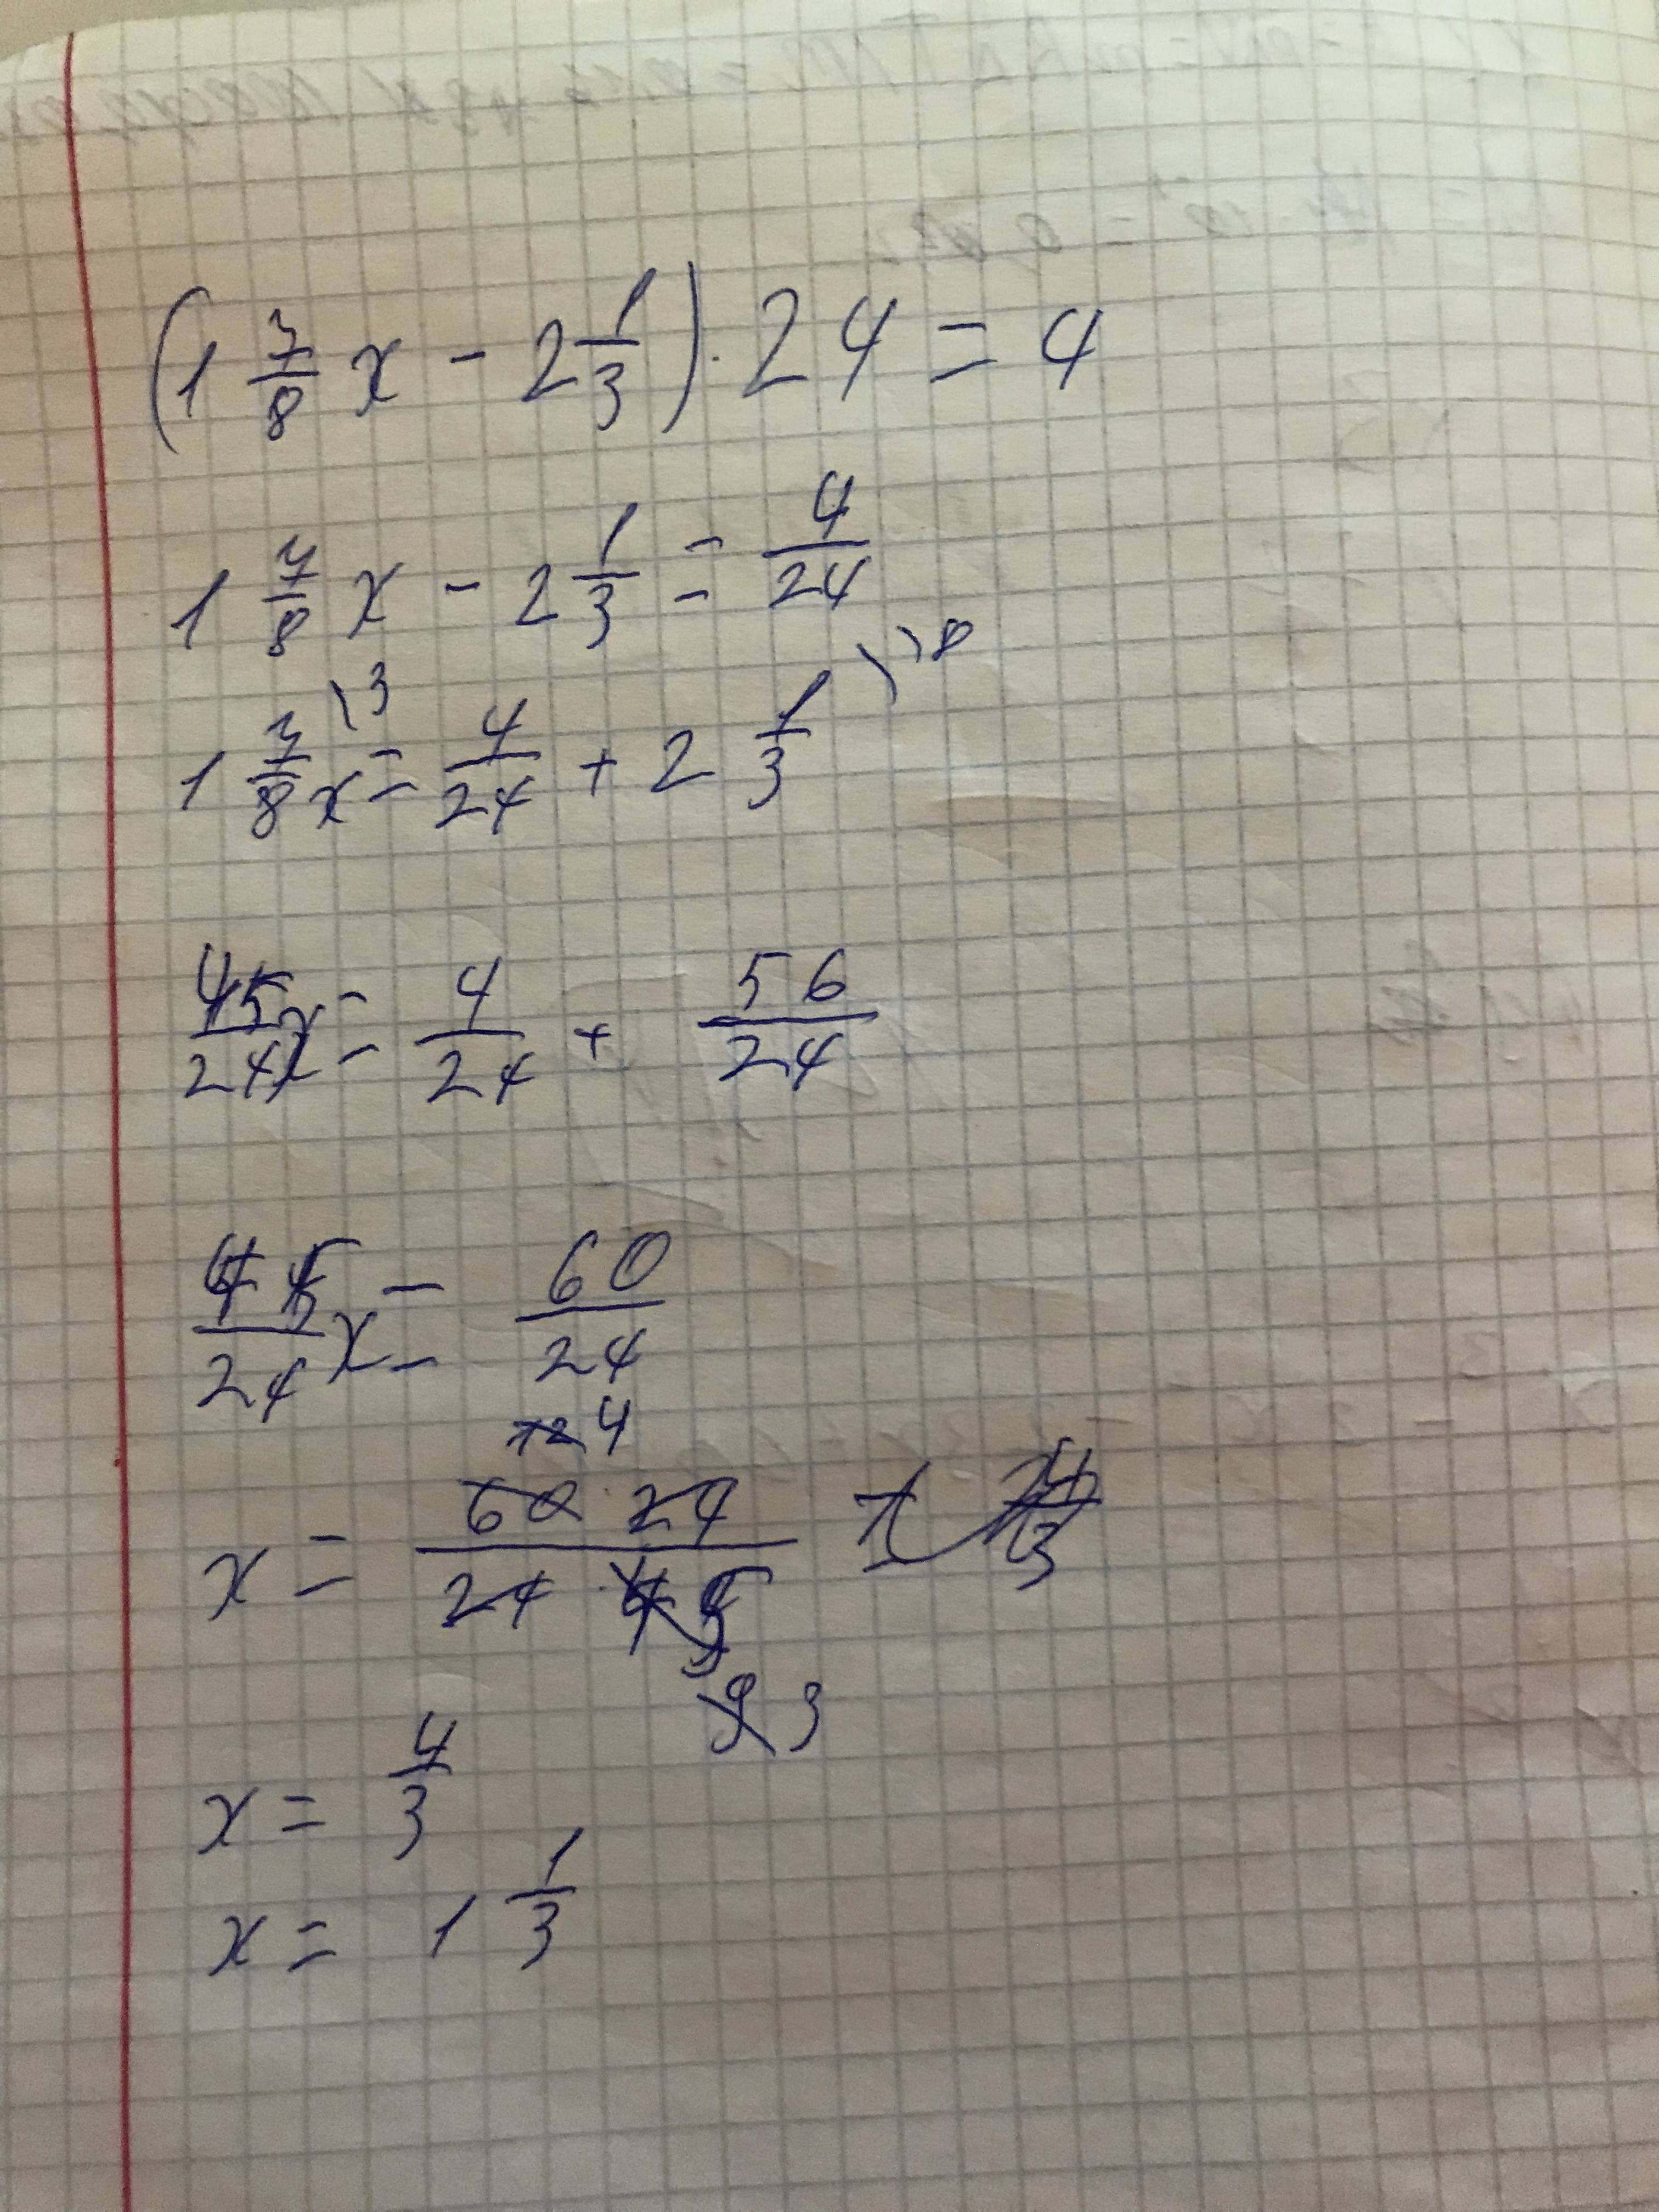 (1 7/8 x - 2 1/3) · 24 = 4
1 7/8 x - 2 1/3 = 4/24
1 7/8 x \3 = 4/24 + 2 1/3 \8
45/24 x = 4/24 + 56/24
45/24 x = 60/24
12 4
x = 60 · 24 / 24 · 45
9 3
x = 4/3
x = 1 1/3